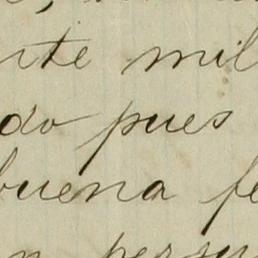 ite mil
do pues
buena fe
n persu